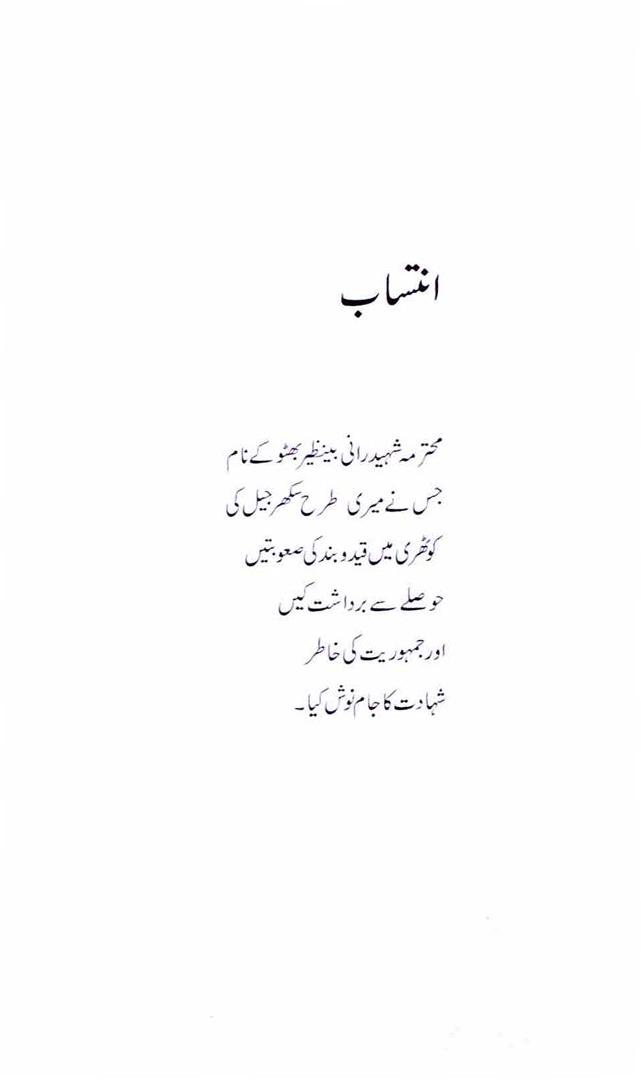 انتساب
محترمہ شہید رانی بینظیر بھٹو کے نام
جس نے میری طرح سکھر جیل کی
کوٹھری میں قید و بند کی صعوبتیں
حوصلے سے برداشت کیں
اور جمہوریت کی خاطر
شہادت کا جام نوش کیا۔